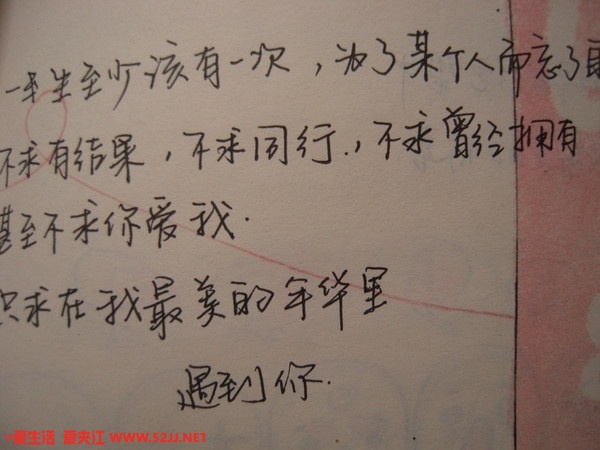 一生至少该有一次，为了某个人而忘了
不求有结果，不求同行，不求曾经拥有
甚至不求你爱我.
只求在我最美的年华里
遇到你.
爱生活 爱夹江 WWW.52JJ.NET